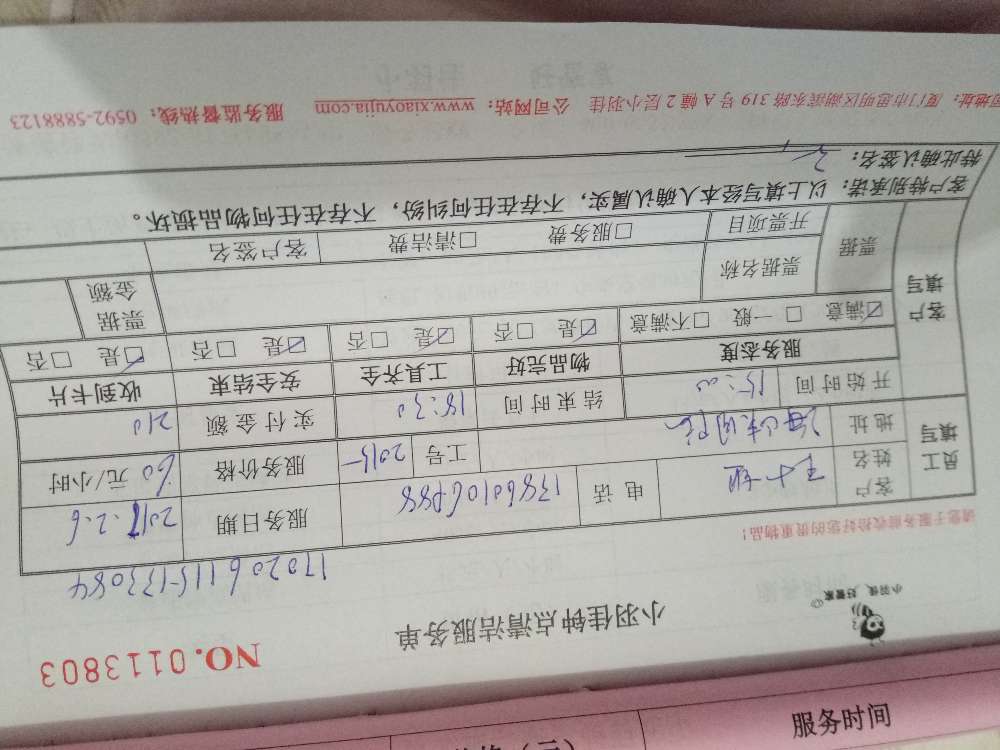 NO.0113803
小羽佳 好管家
小羽佳钟点清洁服务单
170206115-133084
请您于服务前收拾好您的贵重物品!
员工填写 客户姓名 王小姐 电话 服务日期 2017.2.6
地址 工号 2015 服务价格 60 元/小时
开始时间 15:00 结束时间 18:30 实付金额 210
客户填写 服务态度 物品完好 工具齐全 安全结束 收到卡片
☑满意 □一般 □不满意 ☑是 □否 ☑是 □否 ☑是 □否 ☑是 □否
票据 票据名称 票据金额
开票项目 □服务费 □清洁费 客户签名
客户特别承诺：以上填写经本人确认属实，不存在任何纠纷，不存在任何物品损坏。
特此确认签名：
司地址：厦门市思明区湖滨东路 319 号 A 幢 2 层小羽佳 公司网站：www.xiaoyujia.com 服务监督热线：0592-5888123
服务时间